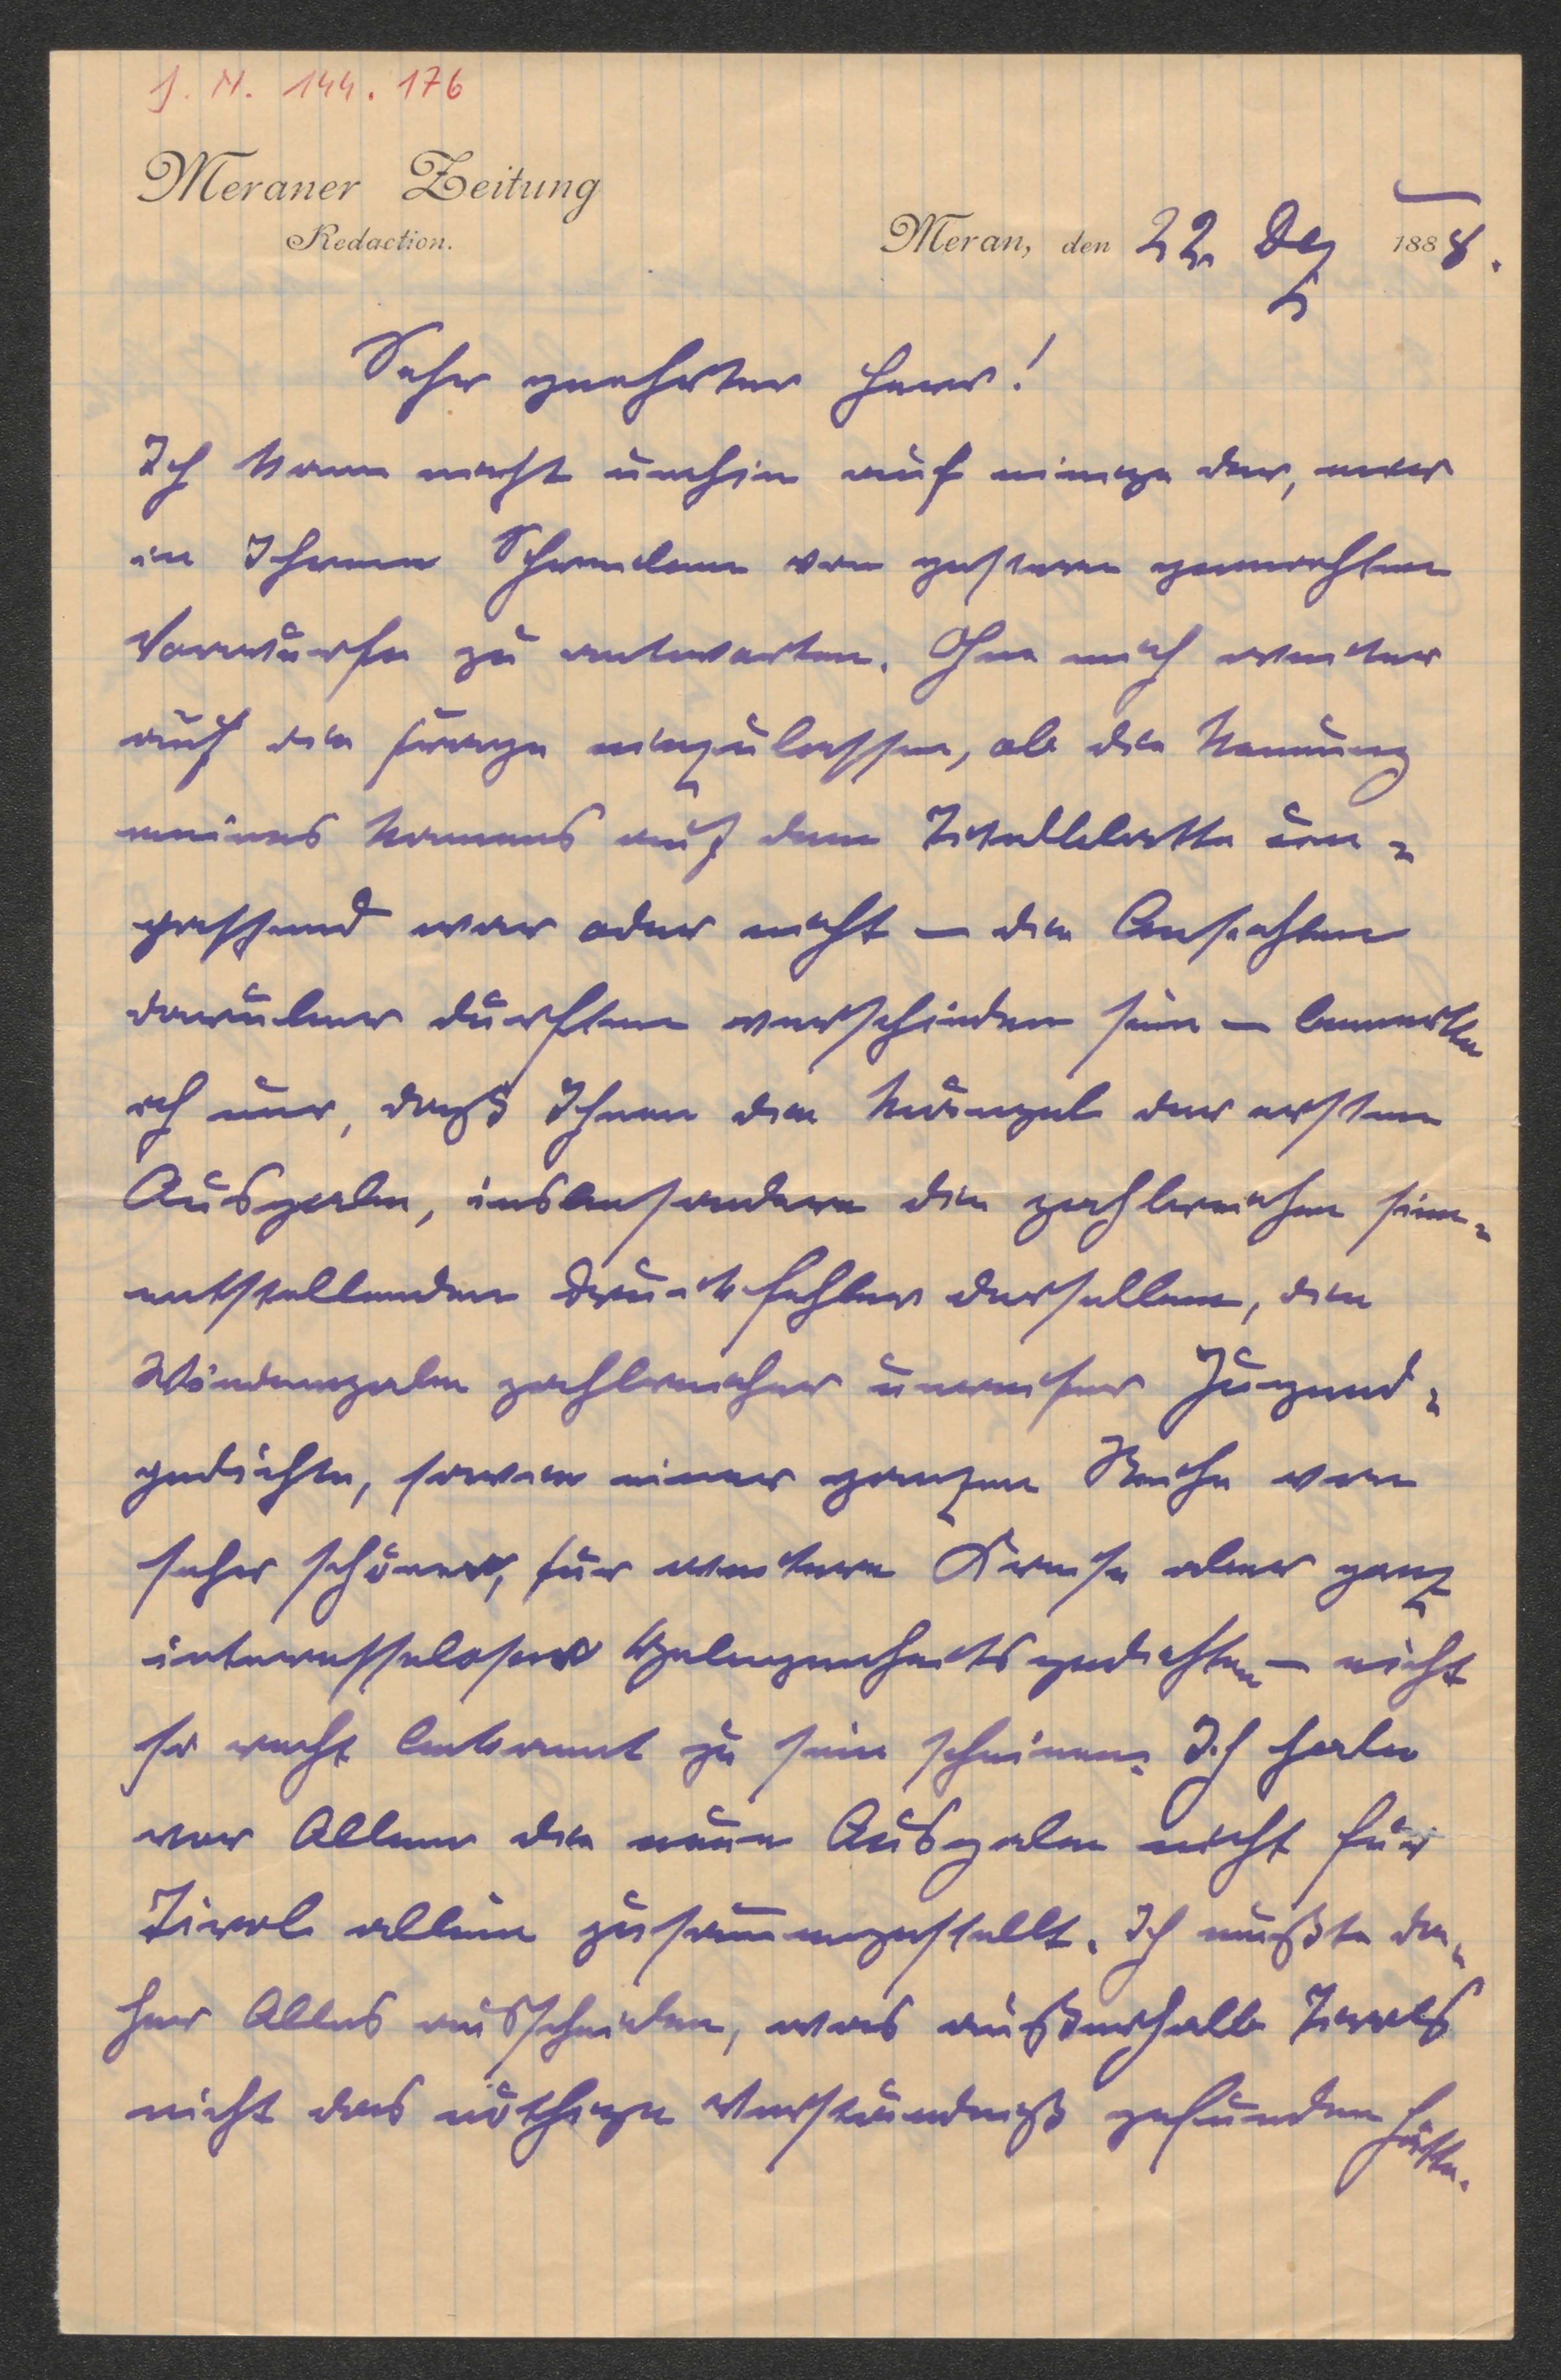 J. N. 144. 176
Meraner Zeitung
Redaction.
Meran, den 22. Dez 1888.
Sehr geehrter Herr!
Ich kann nicht umhin auf einige der, mir
in Ihrem Schreiben von gestern gemachten
Vorwürfe zu antworten. Ohne mich weiter
auf die Frage einzulassen, ob die Nennung
meines Namens auf dem Titelblatte un-
passend war oder nicht – die Ansichten
darüber dürften verschieden sein – bemerke
ich nur, daß Ihnen die Mängel der ersten
Ausgabe, insbesondere die zahlreichen sinn-
entstellenden Druckfehler derselben, die
Wiedergabe zahlreicher unreifer Jugend-
gedichte, sowie einer ganzen Reihe von
sehr schönen, für weitere Kreise aber ganz
interesselosen Gelegenheitsgedichten – nicht
so recht bekannt zu sein scheinen. Ich habe
vor Allem die neue Ausgabe nicht für
Tirol allein zusammengestellt. Ich mußte da-
her Alles ausscheiden, was außerhalb Tirols
nicht das nöthige Verständniß gefunden hätte.